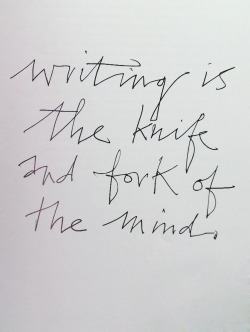 writing is
the knife
and fork of
the mind.